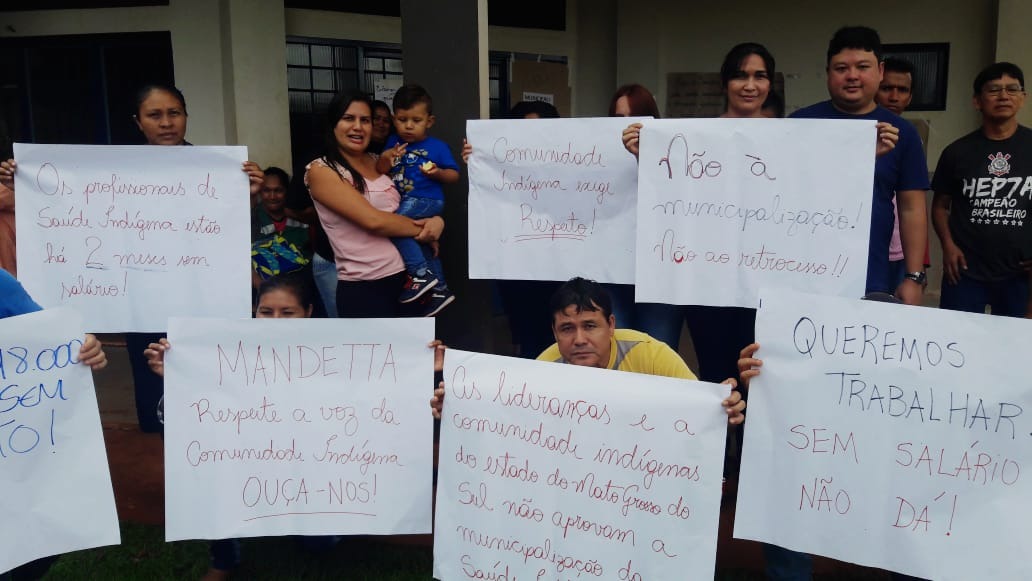 Os profissionais de
Saúde Indígena estão
há 2 meses sem
salário!
Comunidade
Indígena exige
Respeito!
Não à
municipalização!
Não ao retrocesso!!
HEP7A
CAMPEÃO
BRASILEIRO
18.000
SEM
TO!
MANDETTA
Respeite a voz da
Comunidade Indígena
OUÇA-NOS!
As lideranças e a
comunidade indígenas
do estado do Mato Grosso do
Sul não aprovam a
municipalização da
Saúde
QUEREMOS
TRABALHAR.
SEM SALÁRIO
NÃO DÁ!